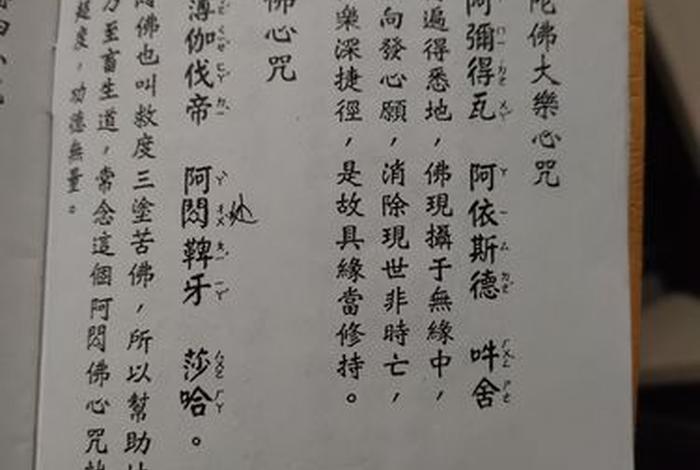 陀佛大樂心咒
阿彌得瓦 阿依斯德 吽舍
遍得悉地,佛現攝于無緣中,
向發心願,消除現世非時亡,
樂深捷徑,是故具緣當修持。
佛心咒
薄伽伐帝 阿閦鞞牙 莎哈。
処
閦佛也叫救度三塗苦佛,所以幫助
乃至畜生道,常念這個阿閦佛心咒
超度,功德無量。